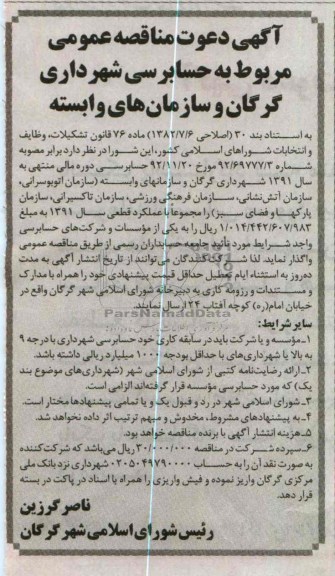 آگهی دعوت مناقصه عمومی
مربوط به حسابرسی شهرداری
گرگان و سازمان‌های وابسته
به استناد بند ۳۰ (اصلاحی ۱۳۸۲/۷/۶) ماده ۷۶ قانون تشکیلات، وظایف
و انتخابات شوراهای اسلامی کشور، این شورا در نظر دارد برابر مصوبه
شماره ۹۲/۶۹۷۷/۳ مورخ ۹۲/۱۱/۲۰ حسابرسی دوره مالی منتهی به
سال ۱۳۹۱ شهرداری گرگان و سازمانهای وابسته (سازمان اتوبوسرانی،
سازمان آتش‌نشانی، سازمان فرهنگی ورزشی، سازمان تاکسیرانی، سازمان
پارکها و فضای سبز) را مجموعاً با عملکرد قطعی سال ۱۳۹۱ به مبلغ
۱/۰۱۴/۴۴۲/۶۰۷/۹۸۳ ریال را به یکی از مؤسسات و شرکت‌های حسابرسی
واجد شرایط مورد تأئید جامعه حسابداران رسمی از طریق مناقصه عمومی
واگذار نماید. لذا شرکت‌کنندگان می‌توانند از تاریخ انتشار آگهی به مدت
ده‌روز به استثناء ایام تعطیل حداقل قیمت پیشنهادی خود را همراه با مدارک
و مستندات و رزومه کاری به دبیرخانه شورای اسلامی شهر گرگان واقع در
خیابان امام(ره) کوچه آفتاب ۲۴ ارسال نمایند.
ParsNamadData
سایر شرایط:
۱ـ مؤسسه و یا شرکت باید در سابقه کاری خود حسابرسی شهرداری با درجه ۹
به بالا یا شهرداری‌های با حداقل بودجه ۱۰۰۰ میلیارد ریالی داشته باشد.
۲ـ ارائه رضایت‌نامه کتبی از شورای اسلامی شهر (شهرداری‌های موضوع بند
یک) که مورد حسابرسی مؤسسه قرار گرفته‌اند الزامی است.
۳ـ شورای اسلامی شهر در رد و قبول یک و یا تمامی پیشنهادها مختار است.
۴ـ به پیشنهادهای مشروط، مخدوش و مبهم ترتیب اثر داده نخواهد شد.
۵ـ هزینه انتشار آگهی با برنده مناقصه خواهد بود.
۶ـ سپرده شرکت در مناقصه ۳۰/۰۰۰/۰۰۰ ریال می‌باشد که شرکت‌کننده
به صورت نقد آن را به حساب ۰۲۰۵۰۴۹۷۹۰۰۰۰ شهرداری نزد بانک ملی
مرکزی گرگان واریز نموده و فیش واریزی را همراه با اسناد در پاکت در بسته
قرار دهد.
ناصر گرزین
رئیس شورای اسلامی شهر گرگان